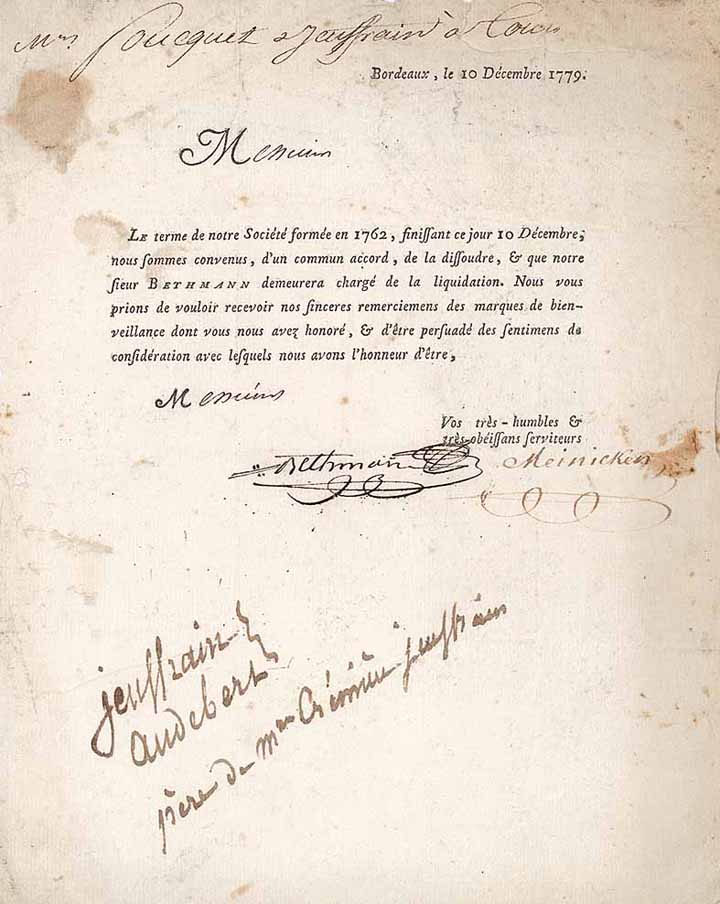 Mrs Foucquet & Jeuffrain à Tours
Bordeaux, le 10 Décembre 1779.
Messieurs
LE terme de notre Société formée en 1762, finiſſant ce jour 10 Décembre,
nous ſommes convenus, d'un commun accord, de la diſſoudre, & que notre
ſieur BETHMANN demeurera chargé de la liquidation. Nous vous
prions de vouloir recevoir nos ſinceres remerciemens des marques de bien-
veillance dont vous nous avez honoré, & d'être perſuadé des ſentimens de
conſidération avec leſquels nous avons l'honneur d'être,
Messieurs
Vos très-humbles &
très-obéiſſans ſerviteurs
Bethmann Meinicken
jeuffrain
audebert
père de mme jeuffrain